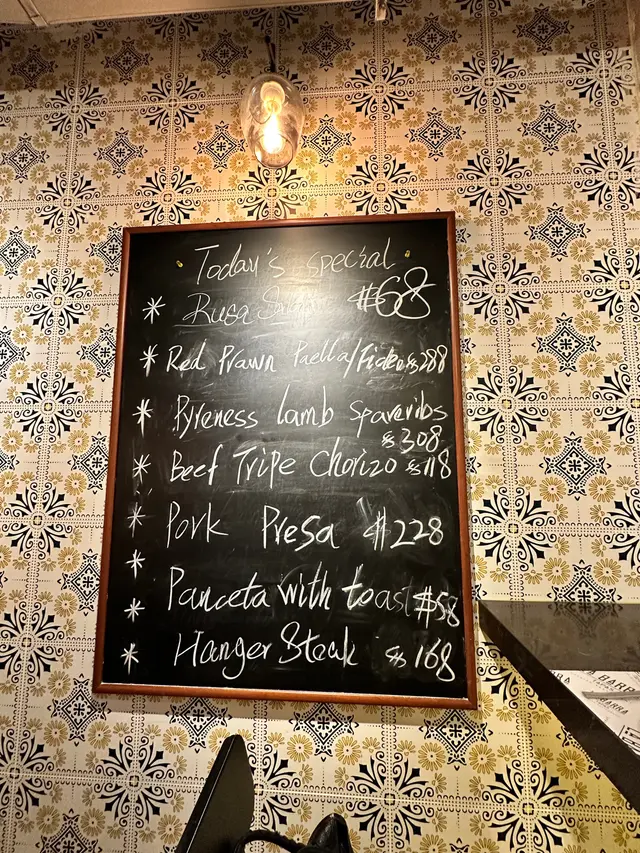 Today's special
* Rusa $68
* Red Prawn Paella/Fideo $288
* Pyreness lamb spareribs
$308
* Beef Tripe Chorizo $118
* Pork Presa $228
*
* Panceta with toast $58
* Hanger Steak $168
BARRA